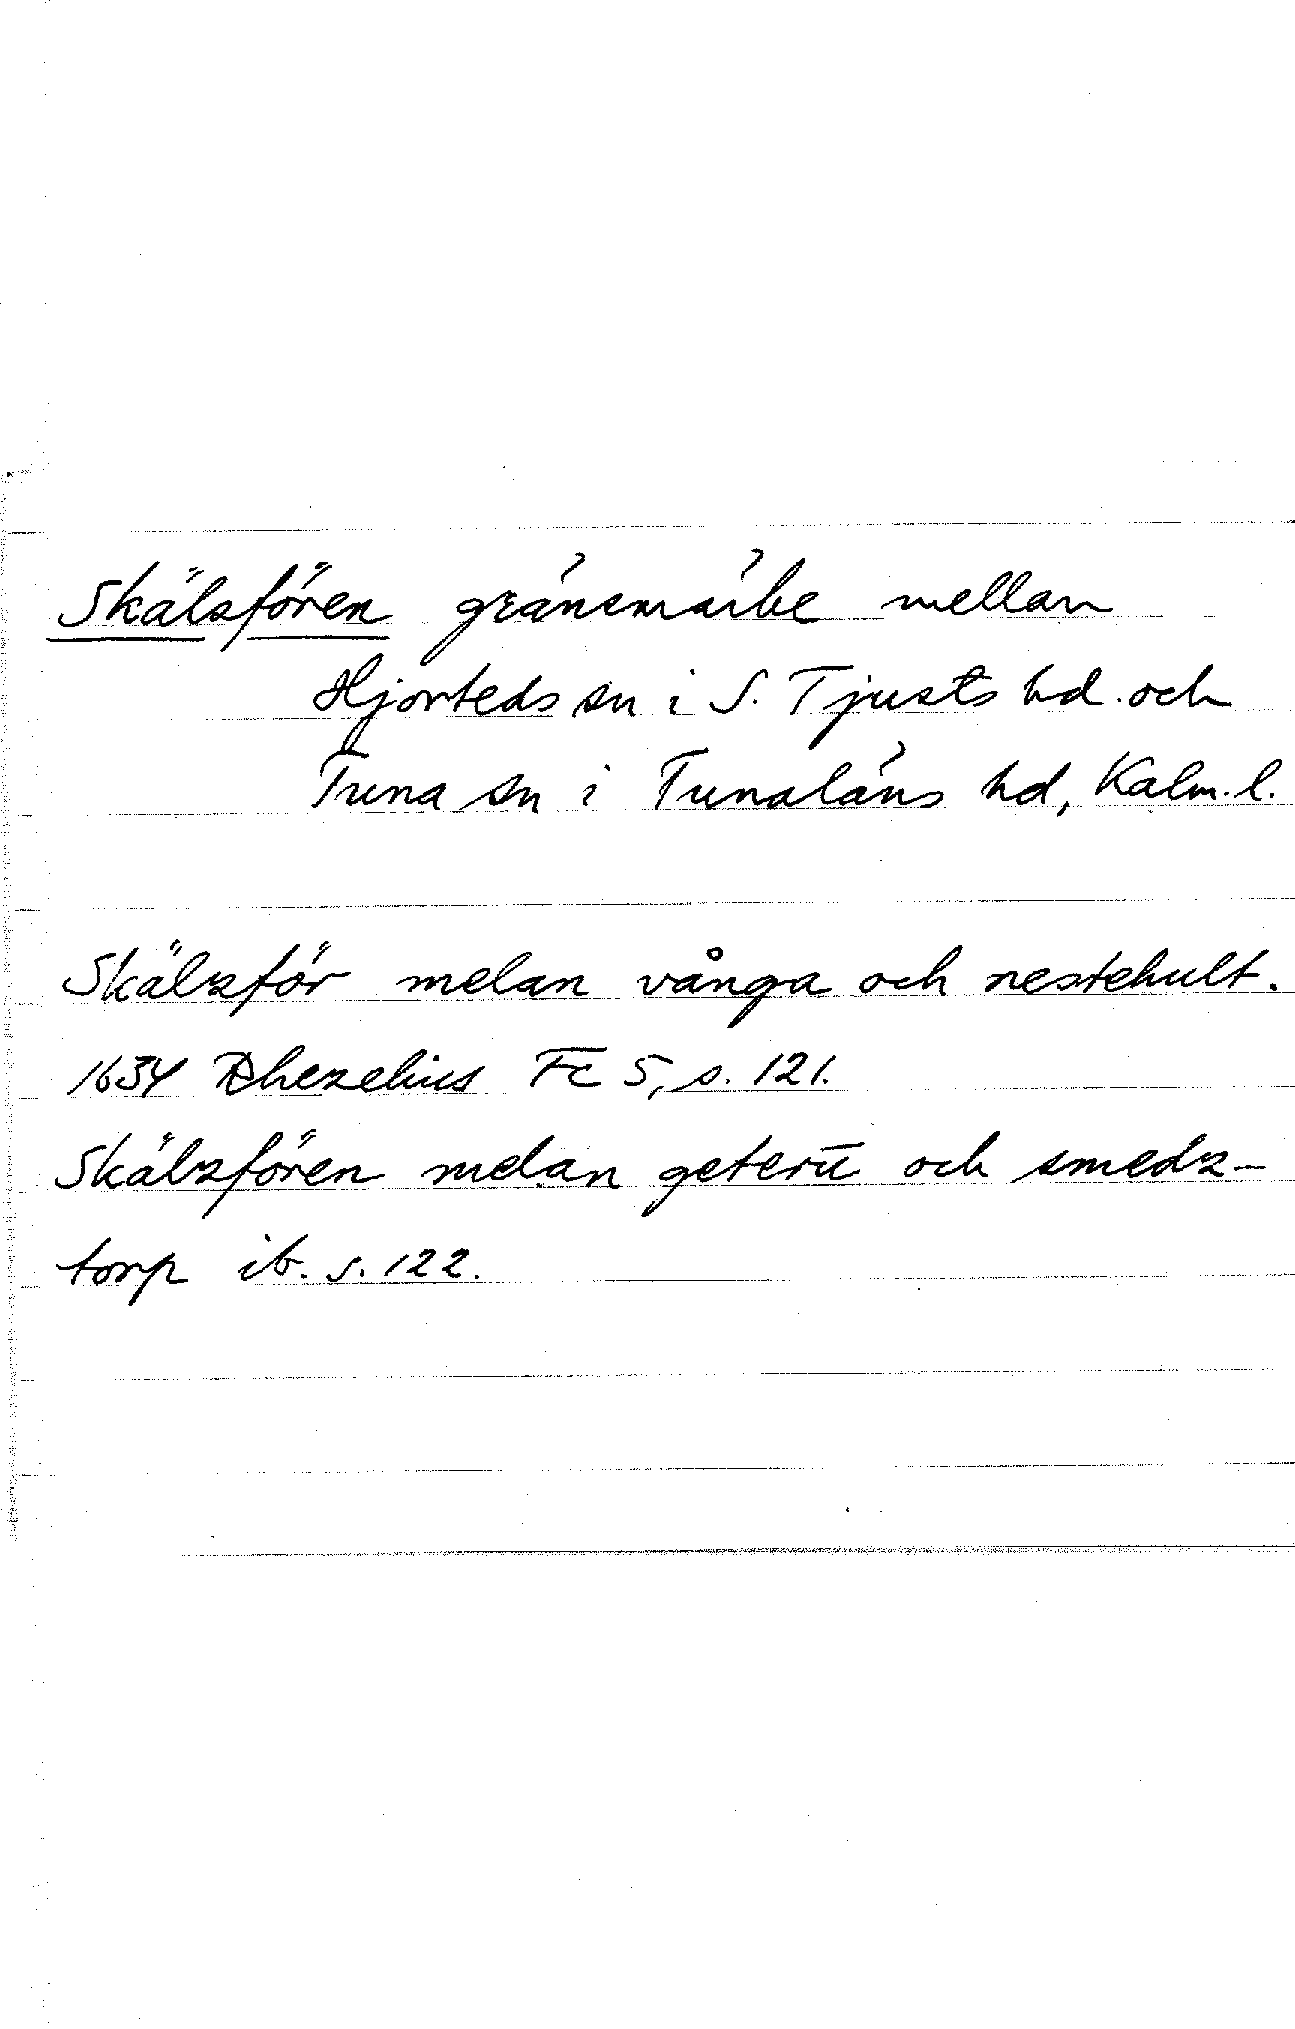 Skälsfören gränsmärke mellan
Hjorteds sn i S. Tjusts hd och
Tuna sn i Tunaläns hd, Kalm. l.
Skälzför melan vånga och nestehult.
1634 Rhezelius Fc 5, s. 121.
Skälzfören melan geterū och smedz-
torp ib. s. 122.